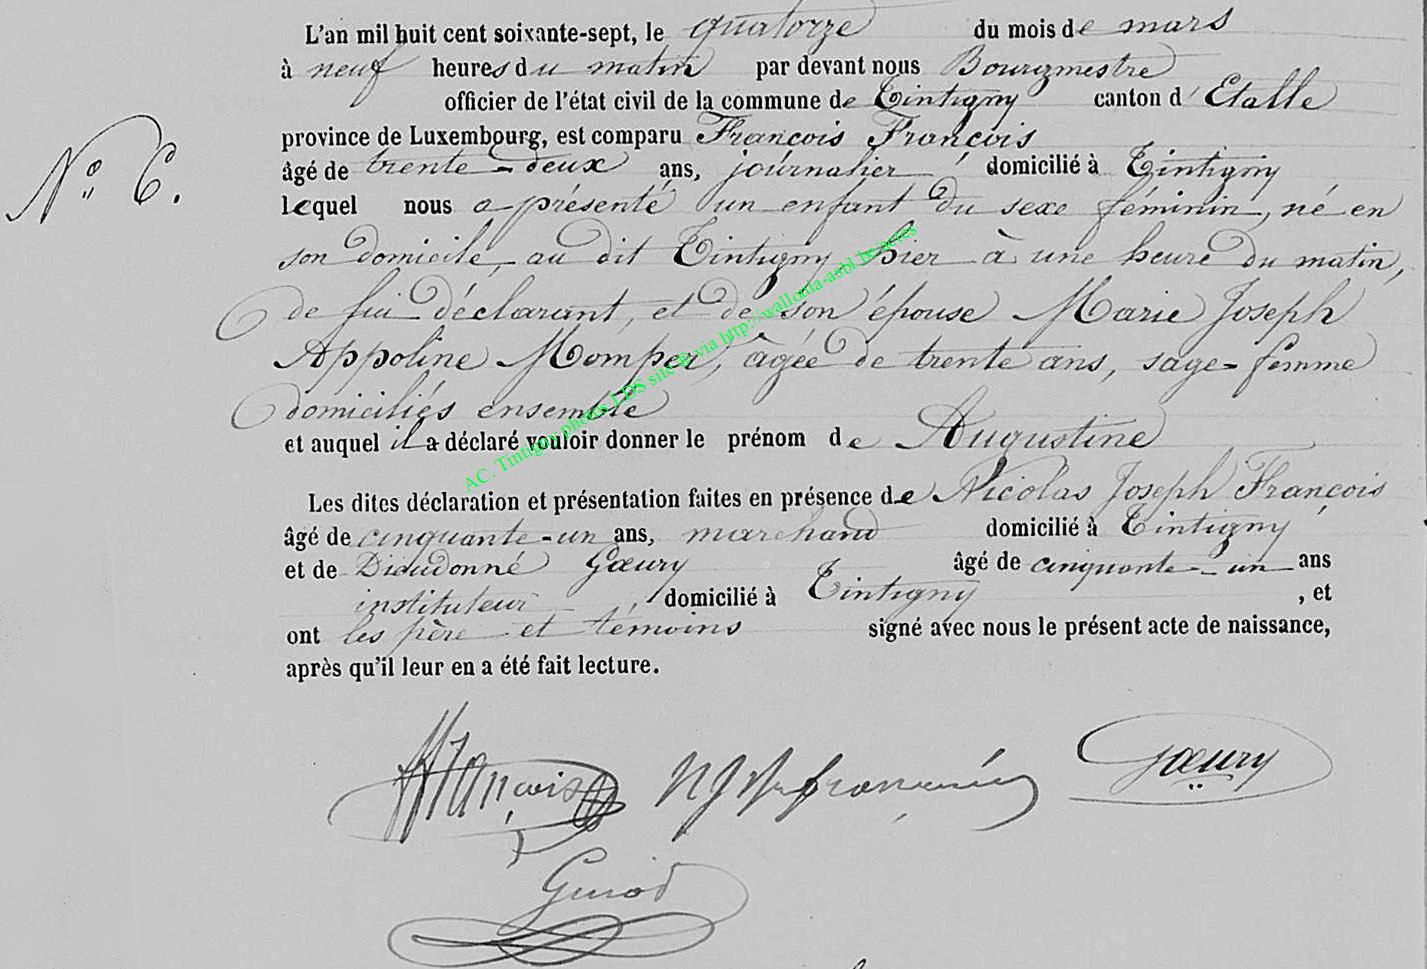 L'an mil huit cent soixante-sept, le quatorze du mois de mars
à neuf heures du matin par devant nous Bourgmestre
officier de l'état civil de la commune de Tintigny canton d' Etalle
province de Luxembourg, est comparu François François
âgé de trente-deux ans, journalier domicilié à Tintigny
N° 6.
lequel nous a présenté un enfant du sexe féminin, né en
son domicile, au dit Tintigny, hier à une heure du matin,
de lui déclarant, et de son épouse Marie Joseph
Appoline Momper, âgée de trente ans, sage-femme
domiciliés ensemble
et auquel il a déclaré vouloir donner le prénom de Augustine
Les dites déclaration et présentation faites en présence de Nicolas Joseph François
âgé de cinquante-un ans, marchand domicilié à Tintigny
et de Dieudonné Gœury âgé de cinquante-un ans
instituteur domicilié à Tintigny , et
ont les père et témoins signé avec nous le présent acte de naissance,
après qu'il leur en a été fait lecture.
AC. Tintigny photos LDS site @ via http://wallonia-asbl.be/actes
François Gœury